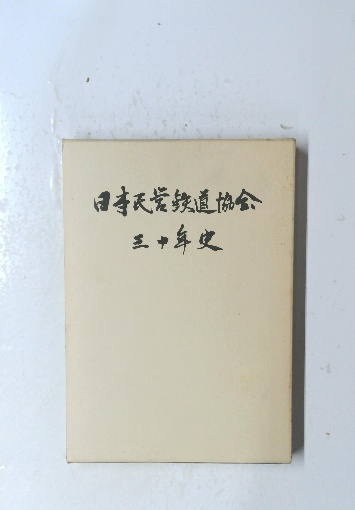 日本民営鉄道協会
三十年史